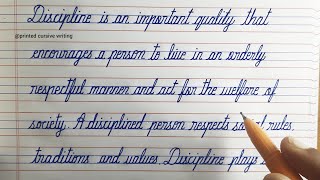 Discipline is an important quality that
@printed cursive writing
encourages a person to live in an orderly
respectful manner and act for the welfare of
society. A disciplined person respects social rules,
traditions and values. Discipline plays